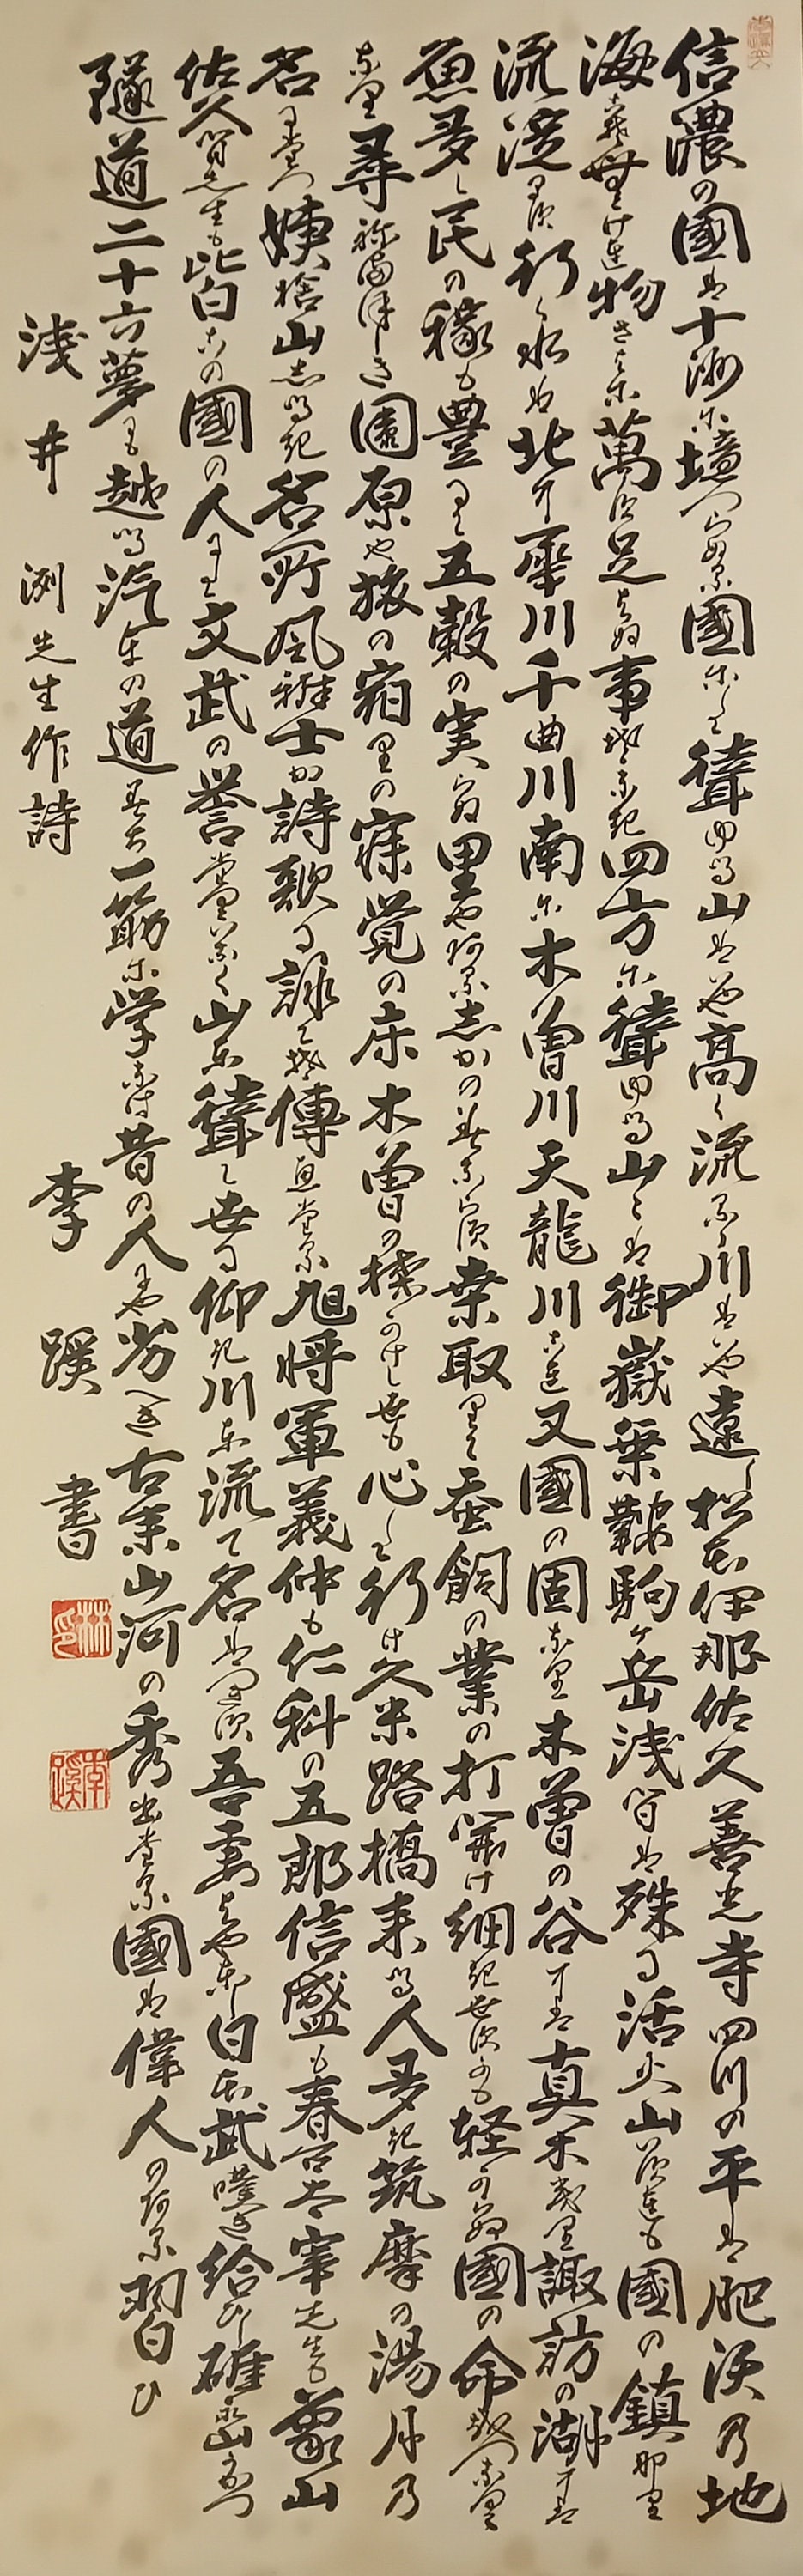 信濃の國は十洲に境つらぬる國にして聳ゆる山はいや高く流るゝ川はいや遠し松本伊那佐久善光寺四川の平は肥沃乃地
海こそ無けれ物さはに萬足はぬ事そなき四方に聳ゆる山々は御嶽乗鞍駒ケ岳浅間は殊に活火山いつれも國の鎮なり
流淀ます行く水は北に犀川千曲川南に木曽川天龍川これ又國の固なり木曽の谷には真木茂り諏訪の湖には
魚多し民の稼も豊にて五穀の実らぬ里やあるしかのみならす桑取りて蚕飼の業の打開け細きよすかも軽からぬ國の命をつなくなり
尋ねまほしき園原や旅の宿りの寐覚の床木曽の棧かけし世も心して行け久米路橋来る人多き筑摩の湯月乃
名にたつ姨捨山しるき名所風雅士か詩歌に詠てそ傳へたる旭将軍義仲も仁科の五郎信盛も春台太宰先生も象山
佐久間先生も皆此の國の人にして文武の誉たくひなく山と聳て世に仰き川と流て名はつきす吾妻はやとし日本武嘆き給ひし碓氷山穿つ
隧道二十六夢にも越る汽車の道みち一筋に学なは昔の人にや劣へき古来山河の秀出たる國は偉人のある習ひ
浅井洌先生作詩 李蹊書